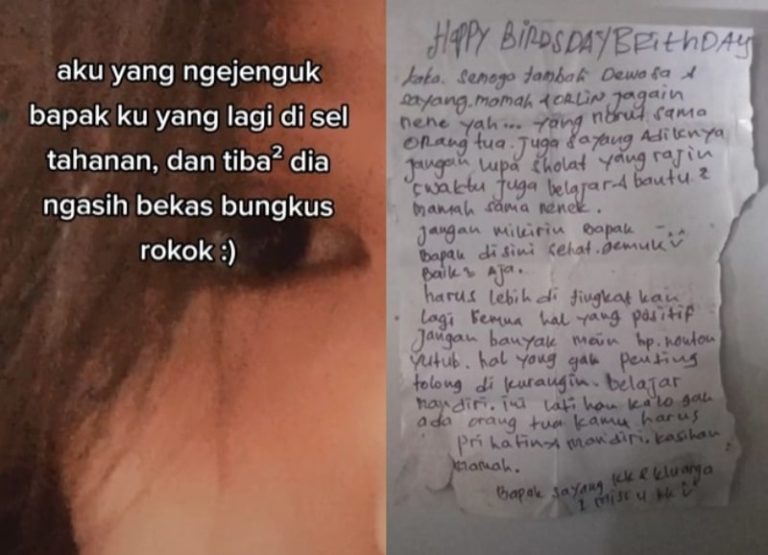 aku yang ngejenguk
bapak ku yang lagi di sel
tahanan, dan tiba² dia
ngasih bekas bungkus
rokok :)
HAPPY BIRDSDAY BRithDAY
kaka. semoga tambah Dewasa &
sayang. momah & ORLIN jagain
nene yah... yang norut sama
orang tua. juga sayang Adiknya
jangan lupa sholat yang rajin
5waktu juga belajar & bantu2
mamah sama nenek.
jangan mikirin bapak
bapak disini sehat. gemuk
baik2 Aja.
harus lebih di tingkat kan
lagi semua hal yang positif
jangan banyak main hp. nonton
yutub. hal yang gak penting
tolong di kurangin. belajar
mandiri. ini latihan kalo gak
ada orang tua kamu harus
prihatin & mandiri. kasihan
mamah.
Bapak sayang kk & kluarga
I miss u kk